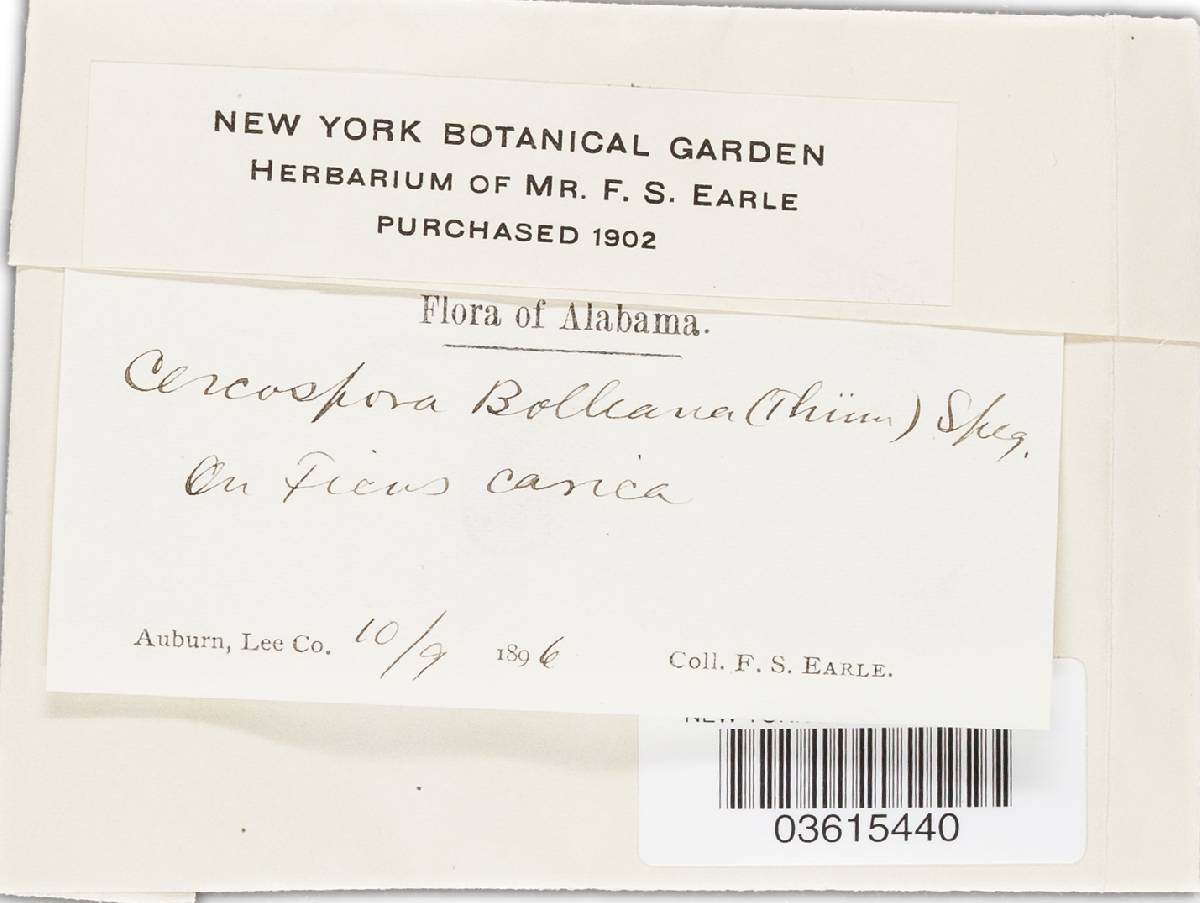 NEW YORK BOTANICAL GARDEN
HERBARIUM OF MR. F. S. EARLE
PURCHASED 1902
Flora of Alabama.
Cercospora Bolleana (Thüm) Speg.
On Ficus carica
Auburn, Lee Co. 10/9 1896 Coll. F. S. EARLE.
03615440